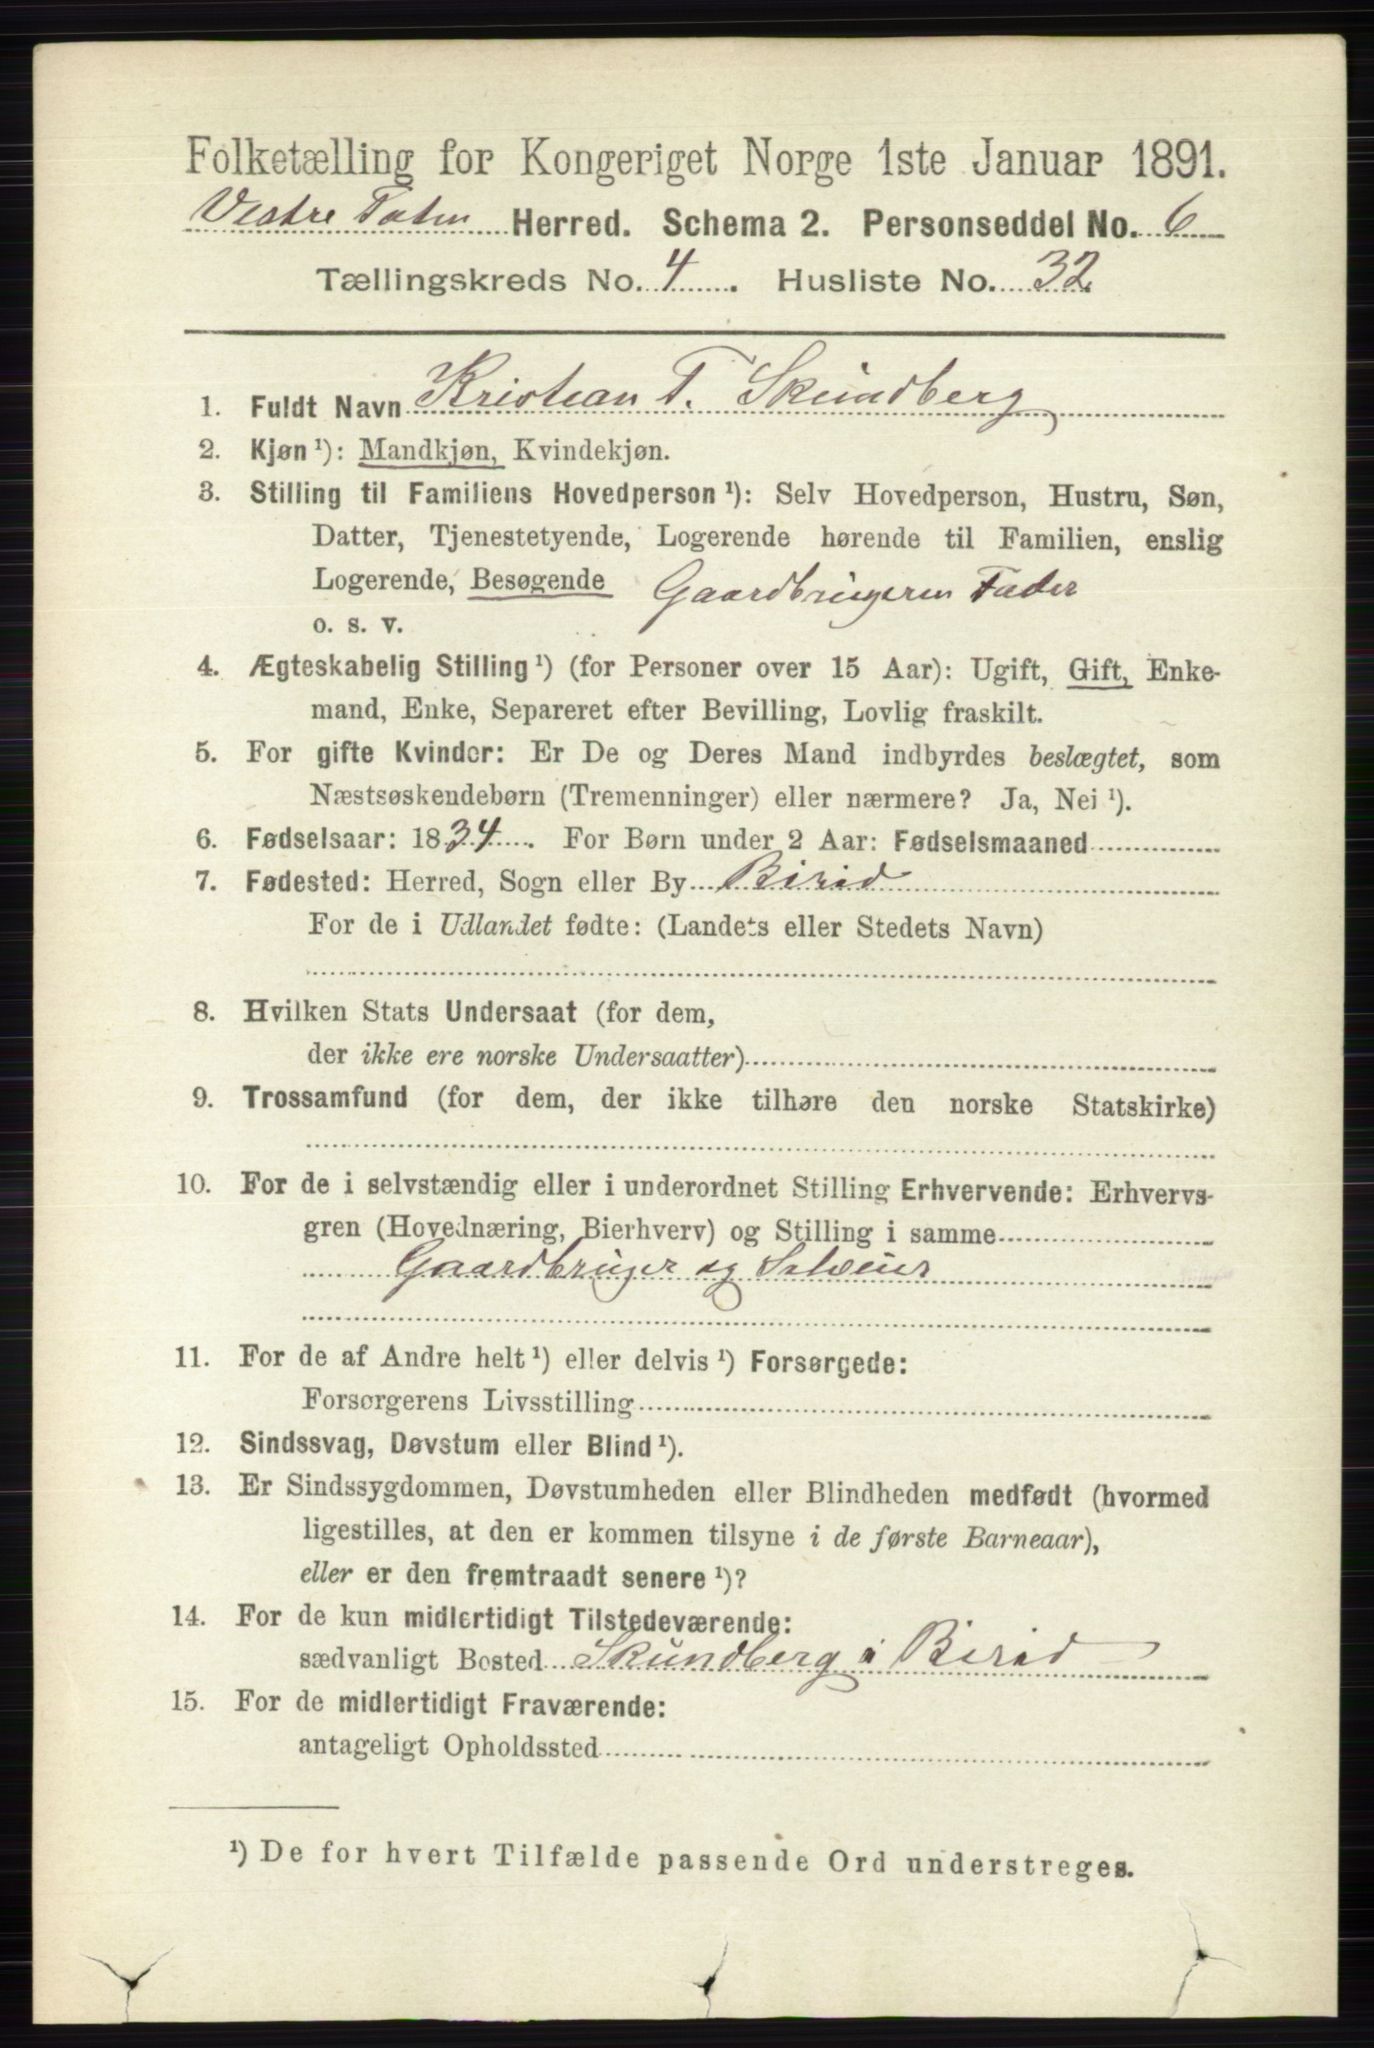 Folketælling for Kongeriget Norge 1ste Januar 1891.
Vestre Toten Herred. Schema 2. Personseddel No. 6
Tællingskreds No. 4. Husliste No. 32.
1. Fuldt Navn Kristian T. Skundberg
2. Kjøn ¹): Mandkjøn, Kvindekjøn.
3. Stilling til Familiens Hovedperson ¹): Selv Hovedperson, Hustru, Søn,
Datter, Tjenestetyende, Logerende hørende til Familien, enslig
Logerende, Besøgende Gaardbrugeren Fader
o. s. v.
4. Ægteskabelig Stilling ¹) (for Personer over 15 Aar): Ugift, Gift, Enke-
mand, Enke, Separeret efter Bevilling, Lovlig fraskilt.
5. For gifte Kvinder: Er De og Deres Mand indbyrdes beslægtet, som
Næstsøskendebørn (Tremenninger) eller nærmere? Ja, Nei ¹).
6. Fødselsaar: 1834. For Børn under 2 Aar: Fødselsmaaned
7. Fødested: Herred, Sogn eller By Birid
For de i Udlandet fødte: (Landets eller Stedets Navn)
8. Hvilken Stats Undersaat (for dem,
der ikke ere norske Undersaatter)
9. Trossamfund (for dem, der ikke tilhøre den norske Statskirke)
10. For de i selvstændig eller i underordnet Stilling Erhvervende: Erhvervs-
gren (Hovednæring, Bierhverv) og Stilling i samme
Gaardbruger og Selveier
11. For de af Andre helt ¹) eller delvis ¹) Forsørgede:
Forsørgerens Livsstilling
12. Sindssvag, Døvstum eller Blind ¹).
13. Er Sindssygdommen, Døvstumheden eller Blindheden medfødt (hvormed
ligestilles, at den er kommen tilsyne i de første Barneaar),
eller er den fremtraadt senere ¹)?
14. For de kun midlertidigt Tilstedeværende:
sædvanligt Bosted Skundberg i Birid
15. For de midlertidigt Fraværende:
antageligt Opholdssted
¹) De for hvert Tilfælde passende Ord understreges.